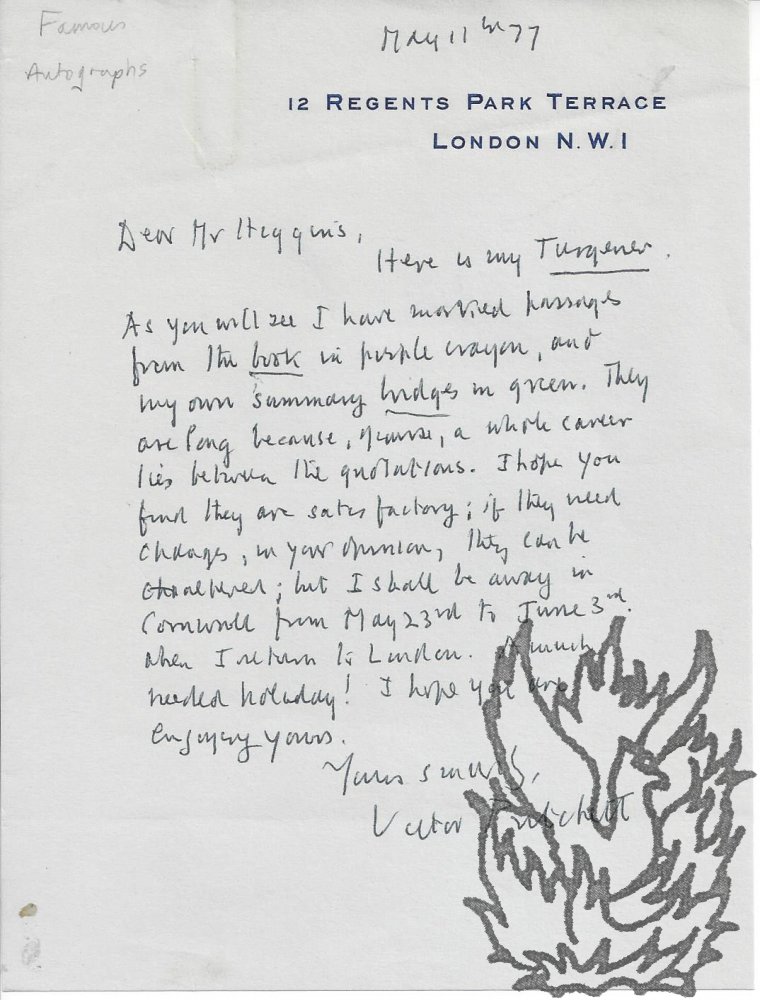 Famous
Autographs
May 11th 77
12 REGENTS PARK TERRACE
LONDON N.W.1
Dear Mr Higgins,
Here is my Turgenev.
As you will see I have marked passages
from the book in purple crayon, and
my own summary bridges in green. They
are long because, of course, a whole career
lies between the quotations. I hope you
find they are satisfactory; if they need
changes, in your opinion, they can be
altered; but I shall be away in
Cornwall from May 23rd to June 3rd.
when I return to London. A much
needed holiday! I hope you are
enjoying yours.
Yours sincerely,
Victor Pritchett